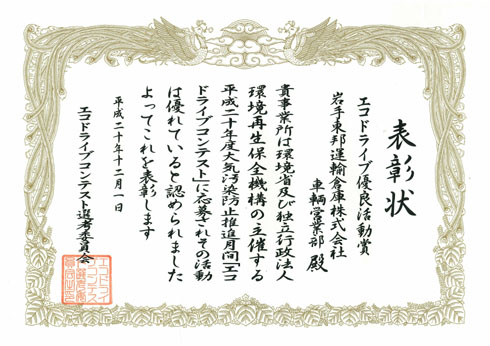 表彰状
エコドライブ優良活動賞
岩手東邦運輸倉庫株式会社
車輌営業部 殿
貴事業所は環境省及び独立行政法人
環境再生保全機構の主催する
平成二十年度大気汚染防止推進月間「エコ
ドライブコンテスト」に応募されその活動
は優れていると認められました
よってこれを表彰します
平成二十年十二月一日
エコドライブコンテスト選考委員会